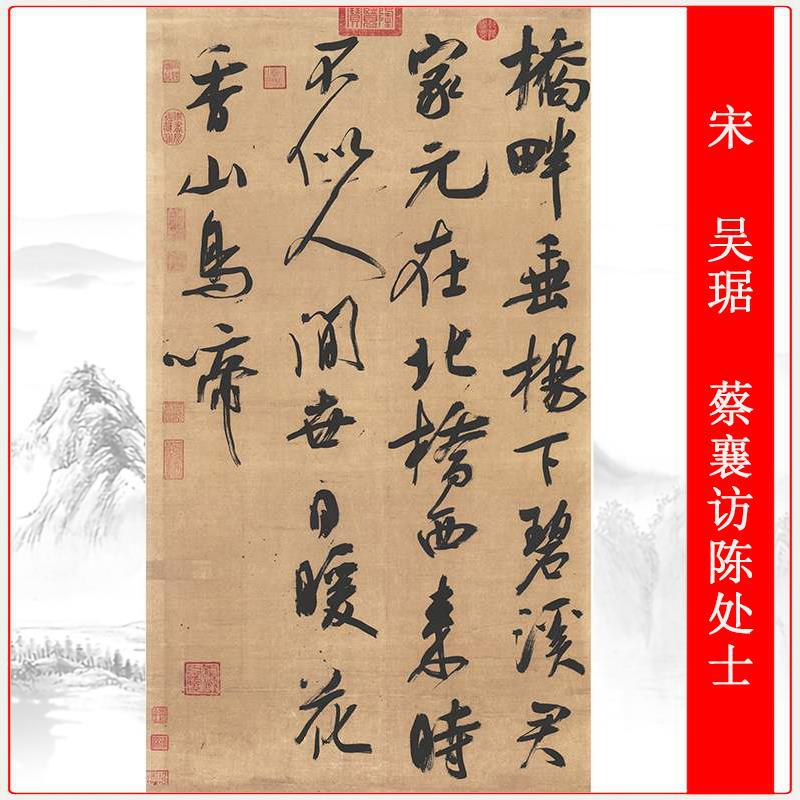 宋 吴琚 蔡襄访陈处士
橋畔垂楊下碧溪君
家元在北橋西來時
不似人間世日暖花
香山鳥啼